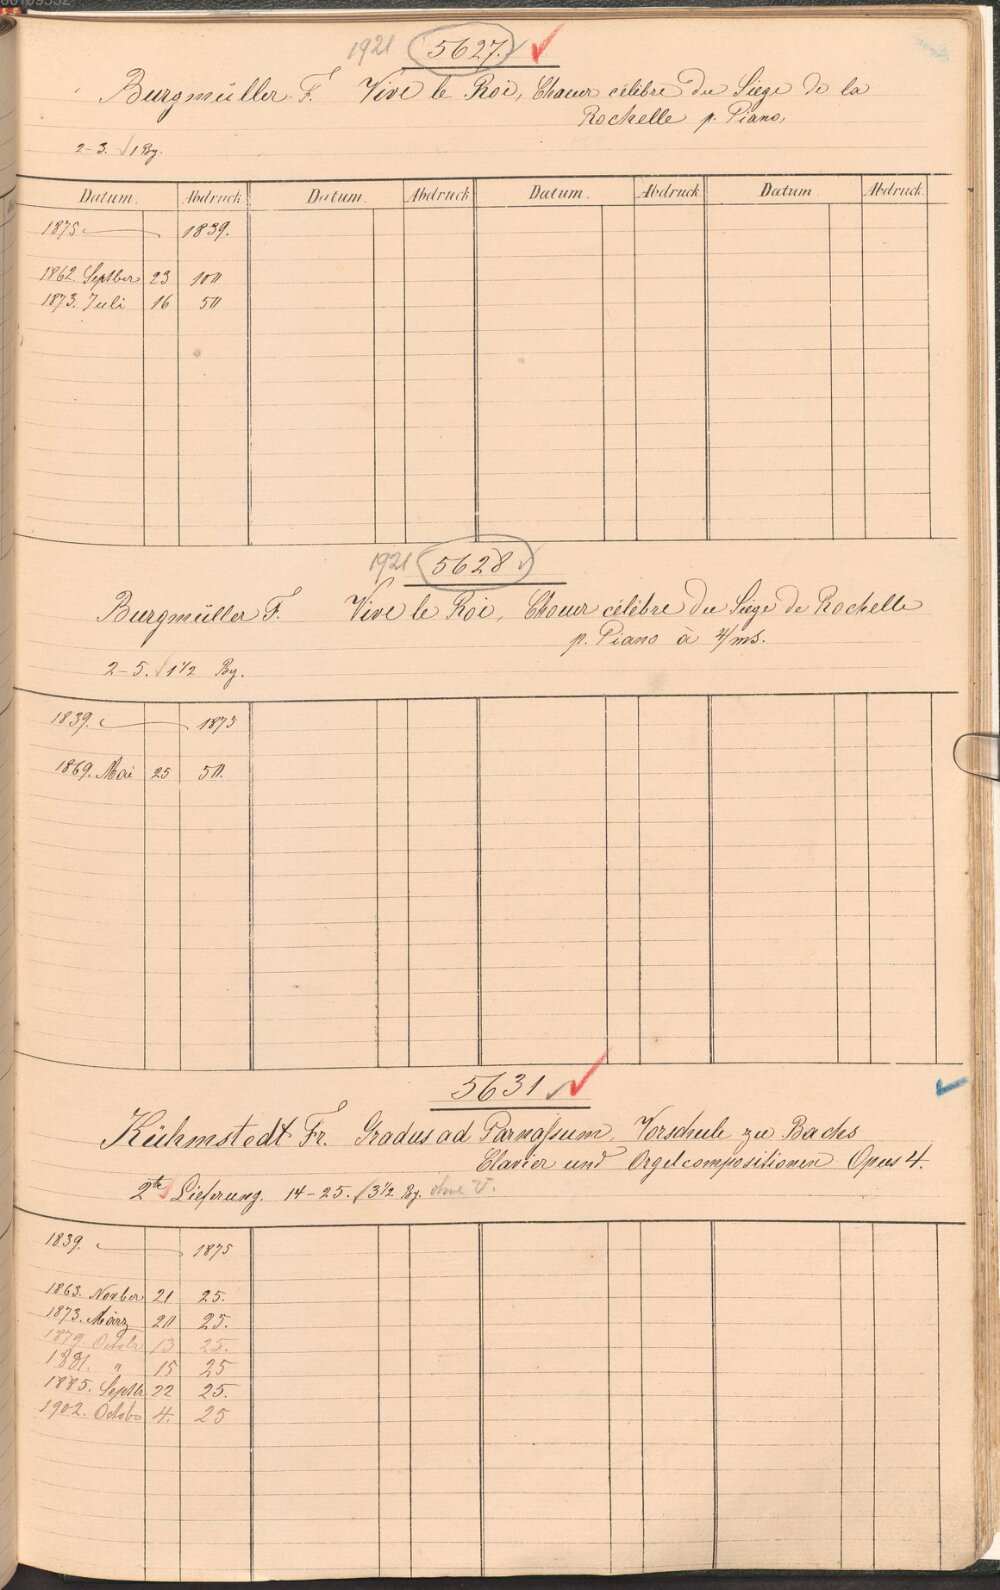 1921 5627.
Burgmüller F. Vive le Roi, Choeur célèbre du Siège de la
Rochelle p. Piano,
2-3. 1 Bg.
Datum. Abdruck Datum. Abdruck Datum. Abdruck Datum Abdruck
1875 1839.
1862. Septber 23 100
1873. Juli 16 50
1921 5628
Burgmüller F. Vive le Roi, Choeur célèbre du Siège de Rochelle
p. Piano à 4/ms.
2-5. 1 1/2 Bg.
1839. 1873
1869. Mai 25 50.
5631
Kühmstedt Fr. Gradus ad Parnassum, Vorschule zu Bachs
Clavier und Orgelcompositionen Opus 4.
2te Lieferung. 14-25. 3 1/2 Bg. ohne T.
1839. 1875
1863. Novber 21 25.
1873. März 20 25.
1879. Octobr 13 25.
1881. " 15 25
1885. Septbr 22 25.
1902. Octobr 4. 25